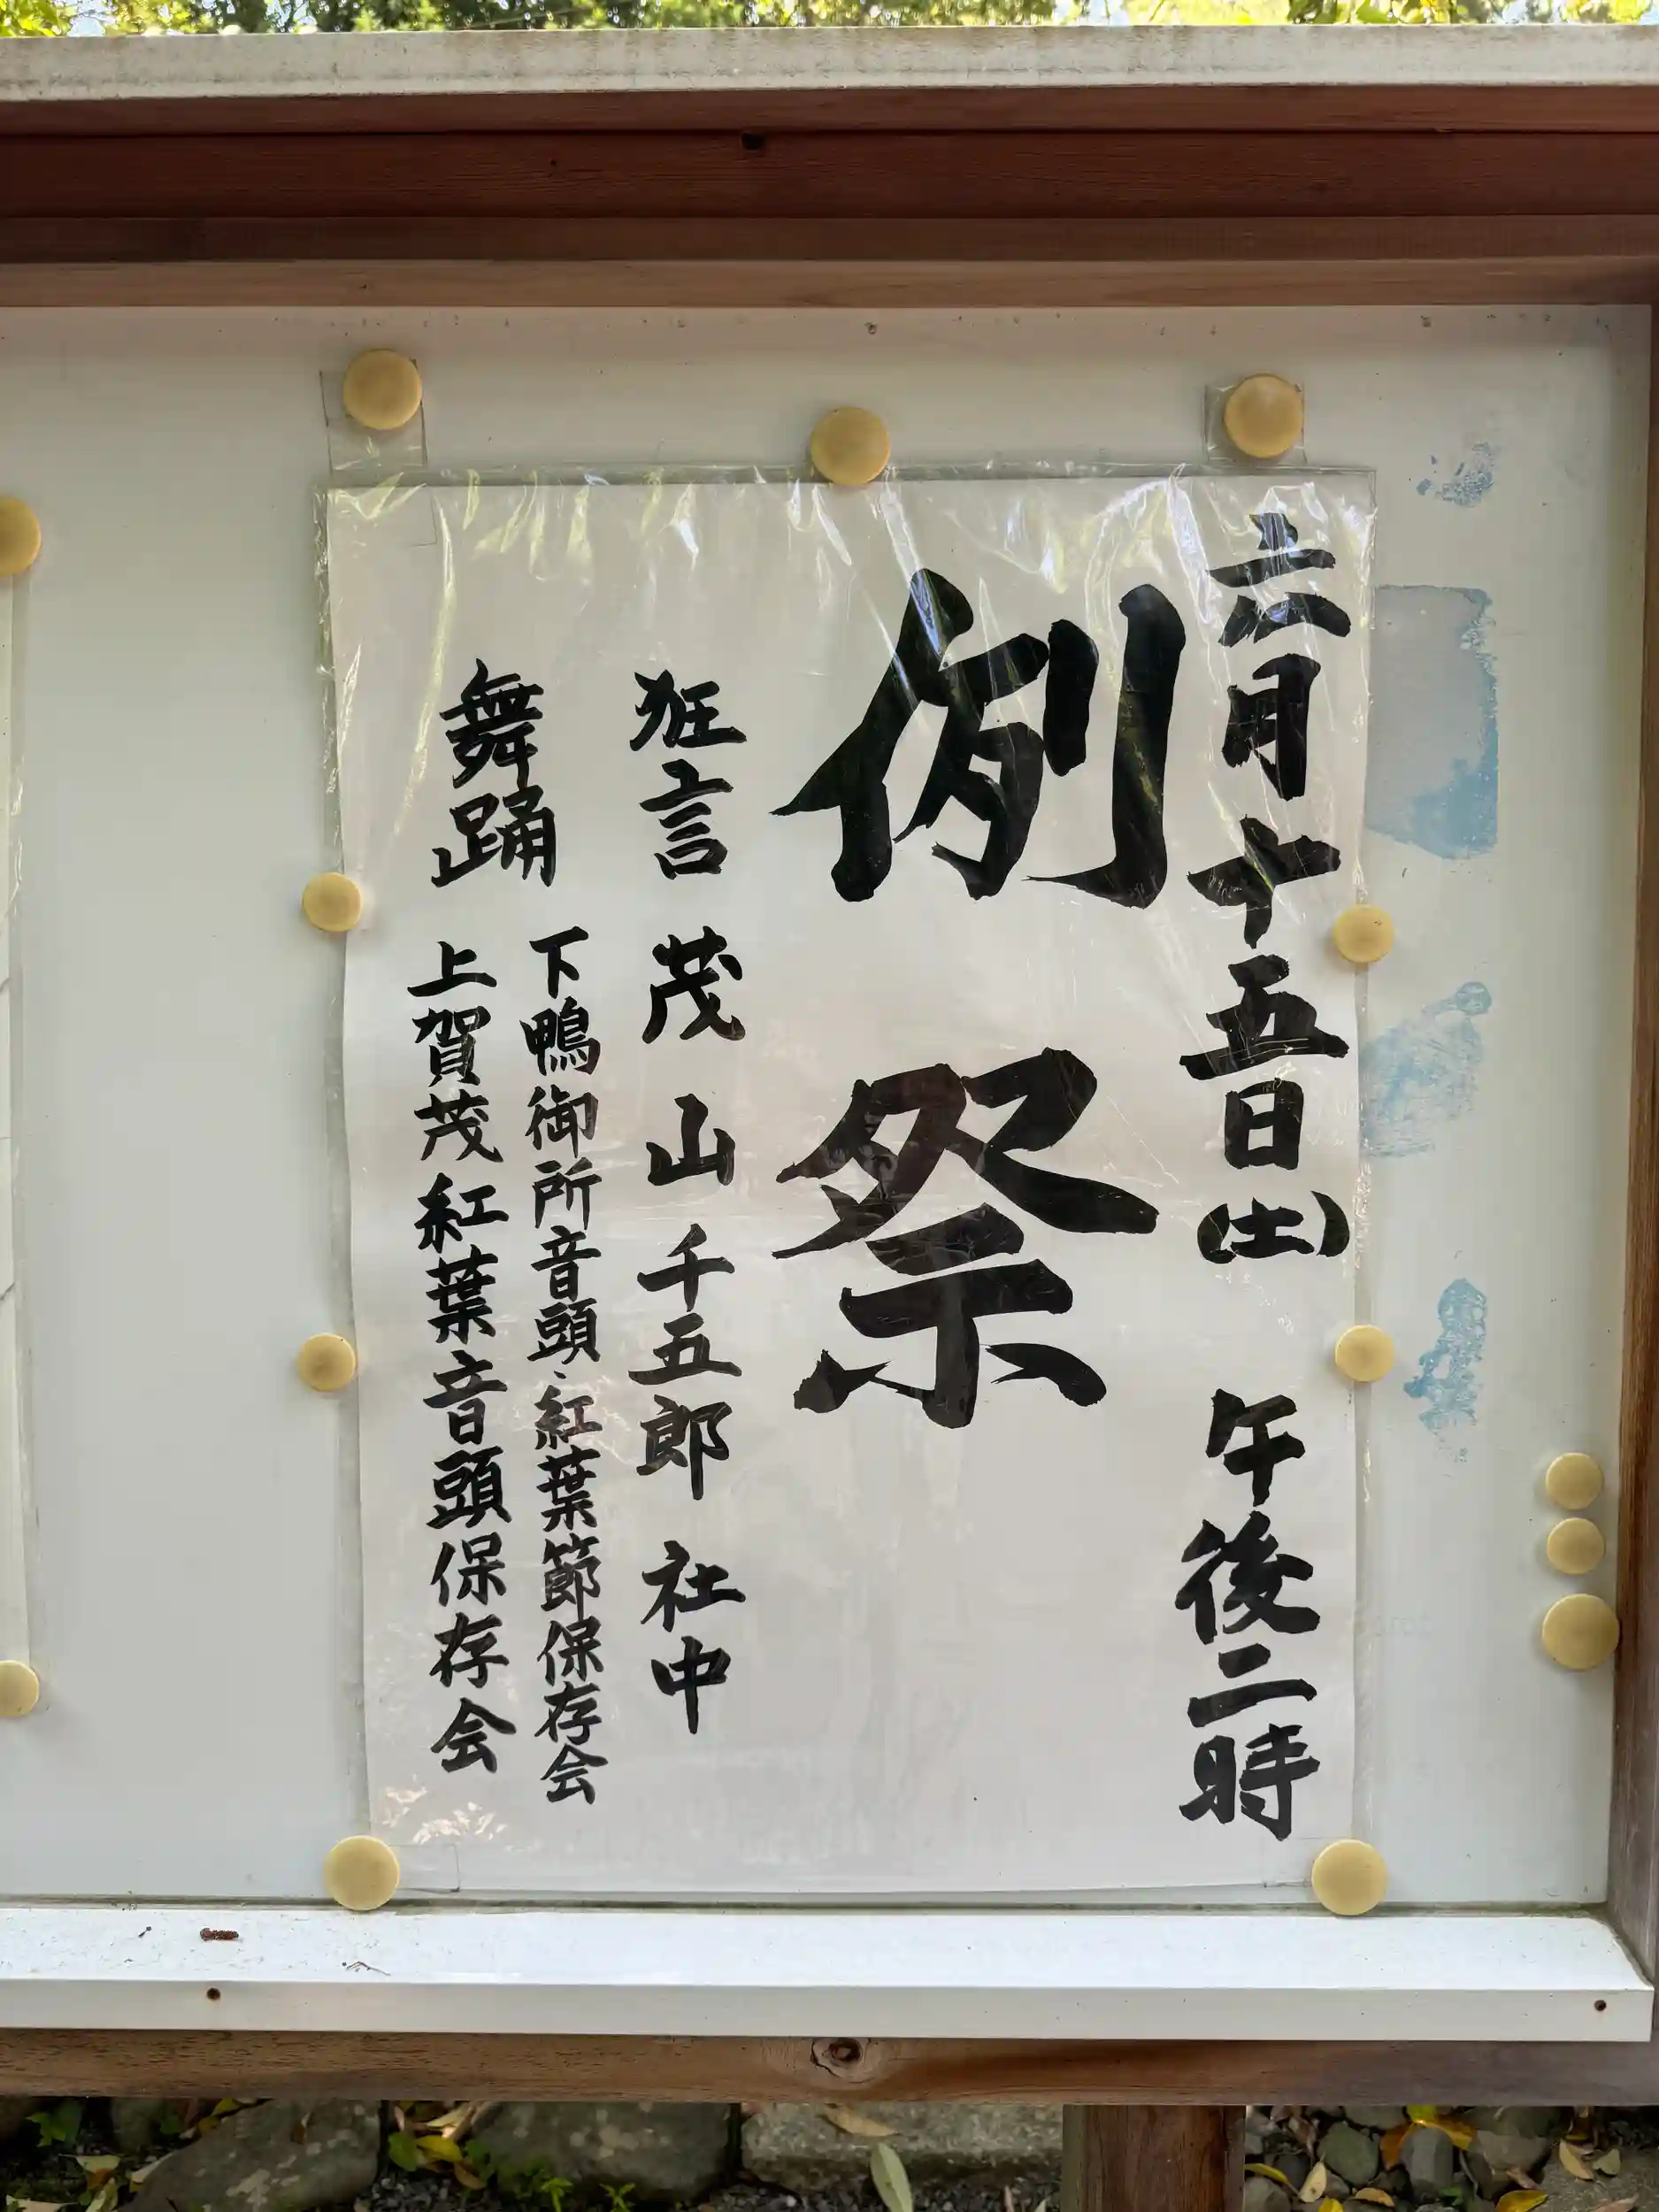 六月十五日(土) 午後二時
例祭
狂言 茂山千五郎 社中
舞踊
下鴨御所音頭・紅葉節保存会
上賀茂紅葉音頭保存会